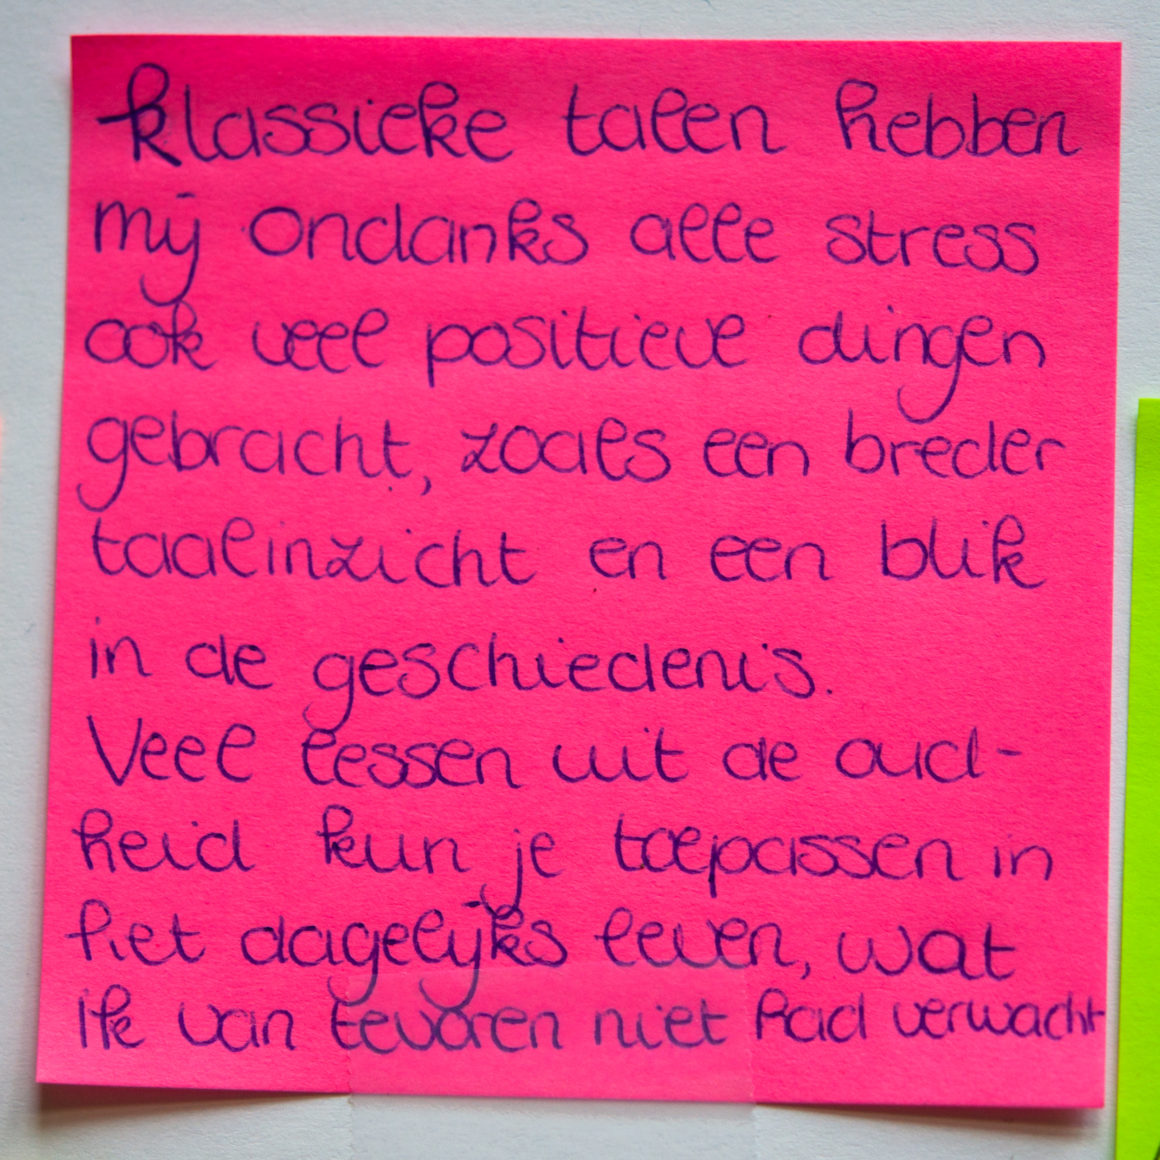 klassieke talen hebben
mij ondanks alle stress
ook veel positieve dingen
gebracht, zoals een breder
taalinzicht en een blik
in de geschiedenis.
Veel lessen uit de oud-
heid kun je toepassen in
het dagelijks leven, wat
ik van tevoren niet had verwacht